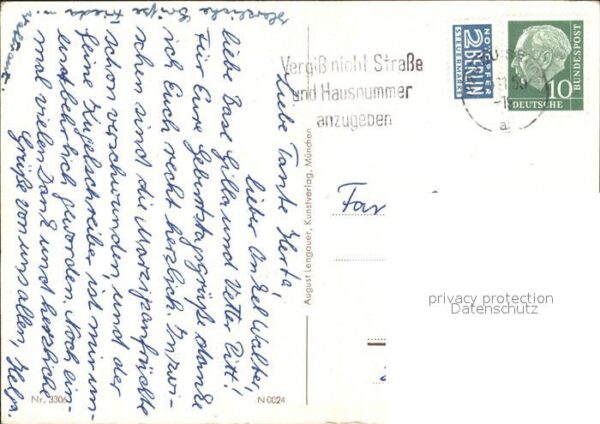 Liebe Tante Herta,
lieber Onkel Walter,
liebe Base Gilla und Vetter Titt!
Für Eure Geburtstagsgrüße danke
ich Euch recht herzlich. Inzwi-
schen sind die Marzipanfrüchte
schon verschwunden, und der
feine Kugelschreiber ist mir un-
entbehrlich geworden. Noch ein-
mal vielen Dank und herzliche
Grüße von uns allen, Helga.
Herzliche Grüße Frieda u.
Vergiß nicht Straße
und Hausnummer
anzugeben
NOTOPFER
2 BERLIN
STEUERMARKE
10
DEUTSCHE
BUNDESPOST
Fam
August Lengauer, Kunstverlag, München
Nr. 3306
N 0024
privacy protection
Datenschutz